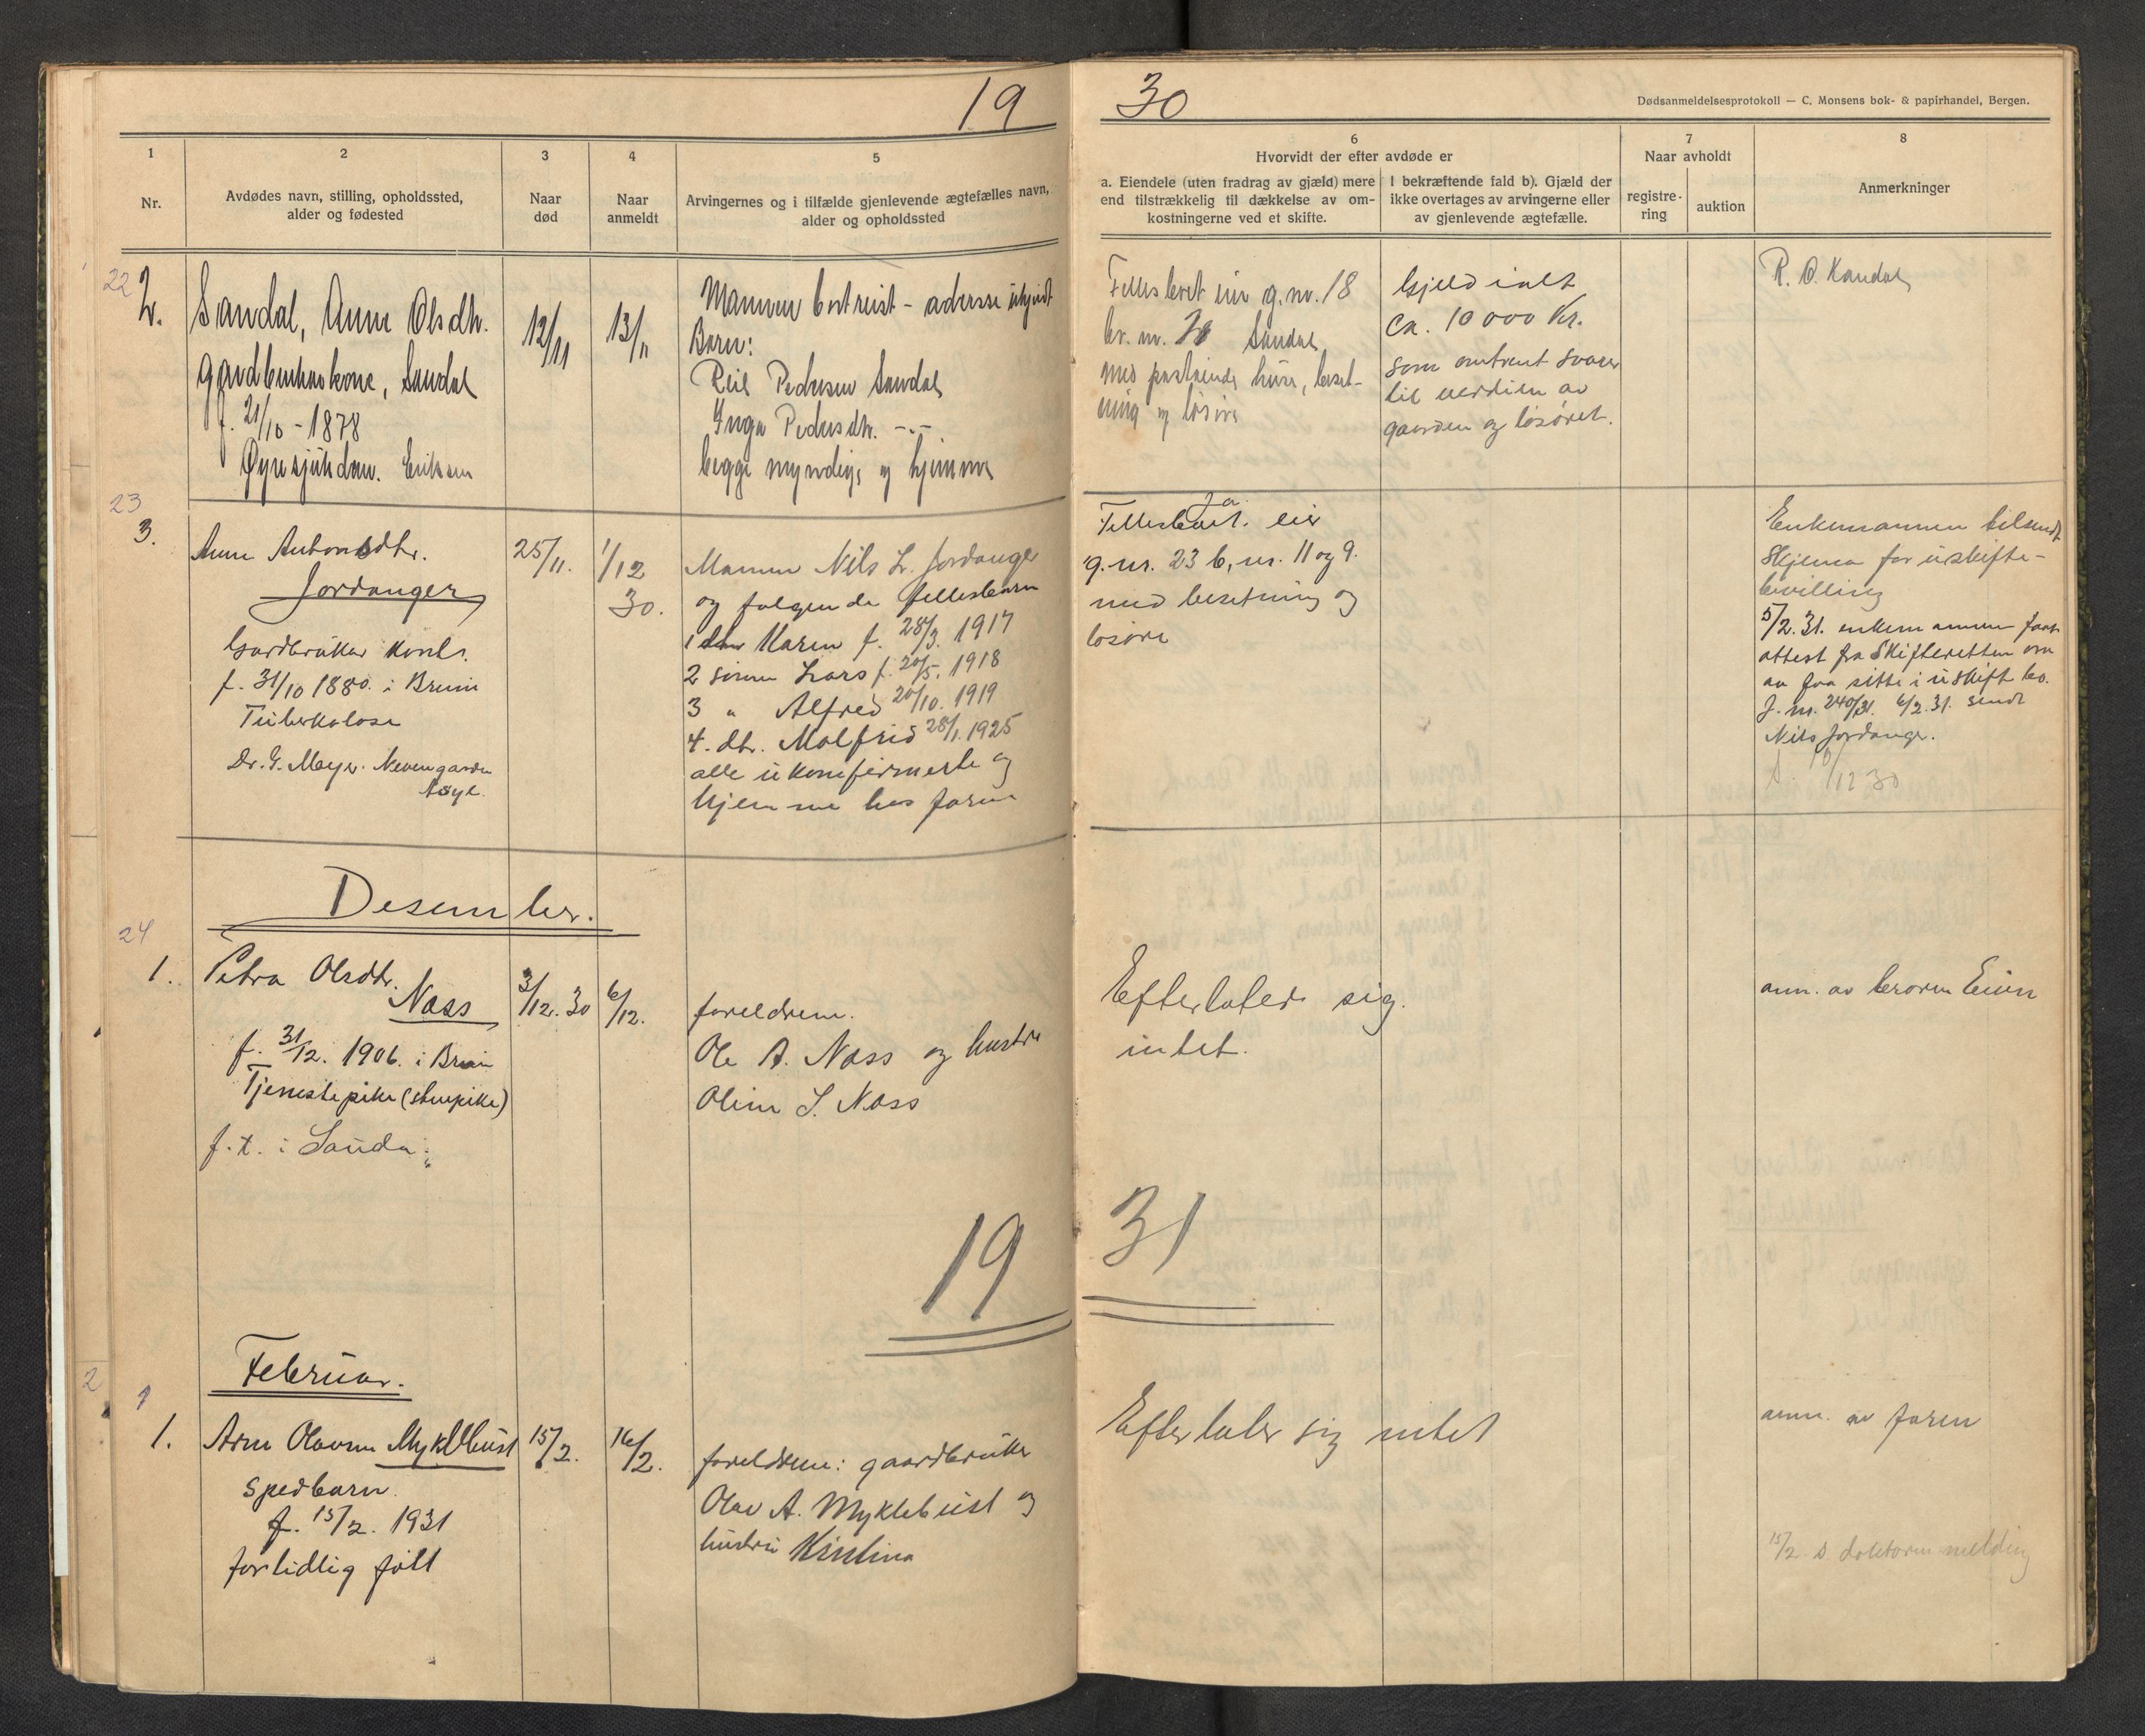 19
30
Dødsanmeldelsesprotokoll — C. Monsens bok- & papirhandel, Bergen.
1
Nr.
2
Avdødes navn, stilling, opholdssted,
alder og fødested
3
Naar
død
4
Naar
anmeldt
5
Arvingernes og i tilfælde gjenlevende ægtefælles navn,
alder og opholdssted
6
Hvorvidt der efter avdøde er
a. Eiendele (uten fradrag av gjæld) mere
end tilstrækkelig til dækkelse av om-
kostningerne ved et skifte.
I bekræftende fald b). Gjæld der
ikke overtages av arvingerne eller
av gjenlevende ægtefælle.
7
Naar avholdt
registre-
ring
auktion
8
Anmerkninger
22
2.
Sandal, Anne Olsdtr.
gardbrukarkone, Sandal
f. 21/10 - 1878
Øyresjukdom.
12/11
13/11
Mannen bortreist - adresse ukjendt
Born:
Pedersen Sandal
Inga Pedersdtr. -"-
begge myndige og hjemme
Fellesboet eier g.nr. 18
br. nr. Sandal
med paastaaende huse, beset-
ning og løsøre
Gjeld ialt
ca. 10 000 Kr.
som omtrent svarer
til verdien av
gaarden og løsøret.
23
3.
Anne Antonsdtr.
Jordanger
Gardbrukar
f. 31/10 1880. i Breim
Tuberkulose
Dr. G. Meyer.
25/11.
1/12
30.
Mannen Nils L. Jordanger
og følgende fellesbarn
1 dtr Karen f. 28/3. 1917
2 sønn Lars f. 20/5. 1918
3 " Alfred 20/10. 1919
4. dtr. Malfrid 28/1. 1925
alle ukonfirmerte og
hjemme hos faren
Ja.
Fellesboet. eier
g.nr. 23 b.nr. 11 og 9.
med besetning og
løsøre
Enkemannen tilsendt
Skjema for uskifte-
bevilling
5/2.31. enkemannen faat
attest fra Skifteretten om
aa faa sitte i uskift bo.
J. nr. 240/31. 6/2.31. sendt
Nils Jordanger.
/12 30
Desember.
24
1.
Petra Olsdtr.
Nøss
f. 31/12. 1906. i Breim
Tjenestepike (stuepike)
f.t. i Sauda.
3/12. 30
6/12.
foreldrene.
Ole A. Nøss og hustru
Oline S. Nøss
Efterlater sig.
intet.
anm. av broren
19
31
Februar.
1
1.
Arne Olavson Myklebust
spedbarn.
f. 15/2. 1931
fortidlig født
15/2.
16/2.
foreldrene: gaardbruker
Olav A. Myklebust og
hustru Kristina
Efterlater sig intet
anm. av faren
15/2. doktorens melding
2